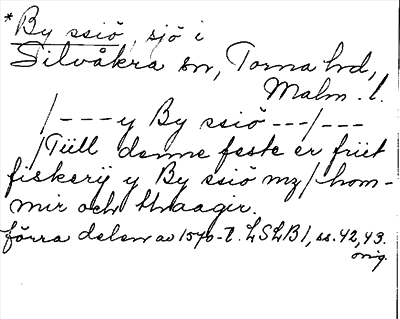 *By ssiö, sjö i
Silvåkra sn, Torna hd,
Malm. l.
/---y By ssiö---/---
/Tiill denne feste er friit
fiskerij y By ssiö mz/hom-
mir och thaagir.
förra delen av 1570-t. LSLB1, ss. 42, 43.
orig.